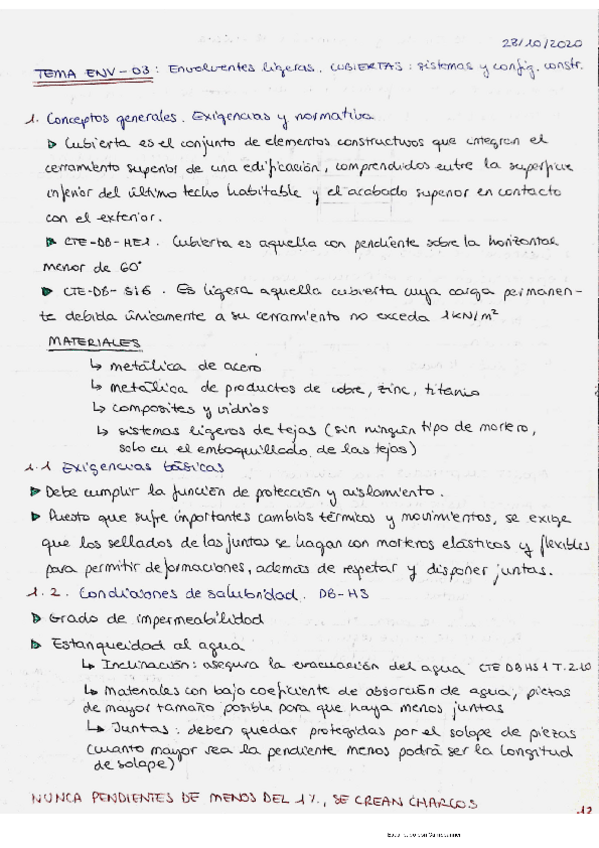 28/10/2020
TEMA ENV-03: Envolventes ligeras. CUBIERTAS: sistemas y config. constr.
1. Conceptos generales. Exigencias y normativa
▶ Cubierta es el conjunto de elementos constructivos que integran el
cerramiento superior de una edificación, comprendidos entre la superficie
inferior del último techo habitable y el acabado superior en contacto
con el exterior.
▶ CTE-DB-HE1. Cubierta es aquella con pendiente sobre la horizontal
menor de 60°
▶ CTE-DB-SI6. Es ligera aquella cubierta cuya carga permanen-
te debida únicamente a su cerramiento no exceda 1KN/m²
MATERIALES
↳ metálica de acero
↳ metálica de productos de cobre, zinc, titanio
↳ composites y vidrios
↳ sistemas ligeros de tejas (sin ningún tipo de mortero,
solo en el emboquillado de las tejas)
1.1 Exigencias básicas
▶ Debe cumplir la función de protección y aislamiento.
▶ Puesto que sufre importantes cambios térmicos y movimientos, se exige
que los sellados de las juntas se hagan con morteros elásticos y flexibles
para permitir deformaciones, además de respetar y disponer juntas.
1.2. Condiciones de salubridad. DB-HS
▶ Grado de impermeabilidad
▶ Estanqueidad al agua
↳ Inclinación: asegura la evacuación del agua CTE DBHS1 T.2.10
↳ Materiales con bajo coeficiente de absorción de agua, piezas
de mayor tamaño posible para que haya menos juntas
↳ Juntas: deben quedar protegidas por el solape de piezas
(cuanto mayor sea la pendiente menos podrá ser la longitud
de solape)
NUNCA PENDIENTES DE MENOS DEL 1%, SE CREAN CHARCOS
12